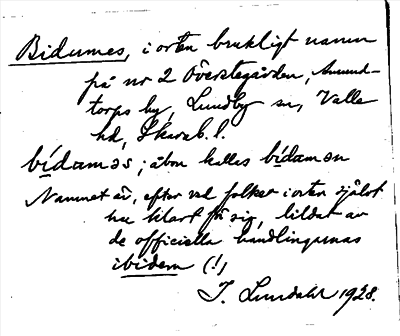 Bidumes, i orten brukligt namn
på nr 2 Överstegården, Amund-
torps by, Lundby sn, Valle
hd, Skarab. l.
bídaməs; åbon kallas bídamən
Namnet är, efter vad folket i orten självt
har klart för sig, bildat av
de officiella handlingarnas
ibidem (!)
J. Lundahl 1928.